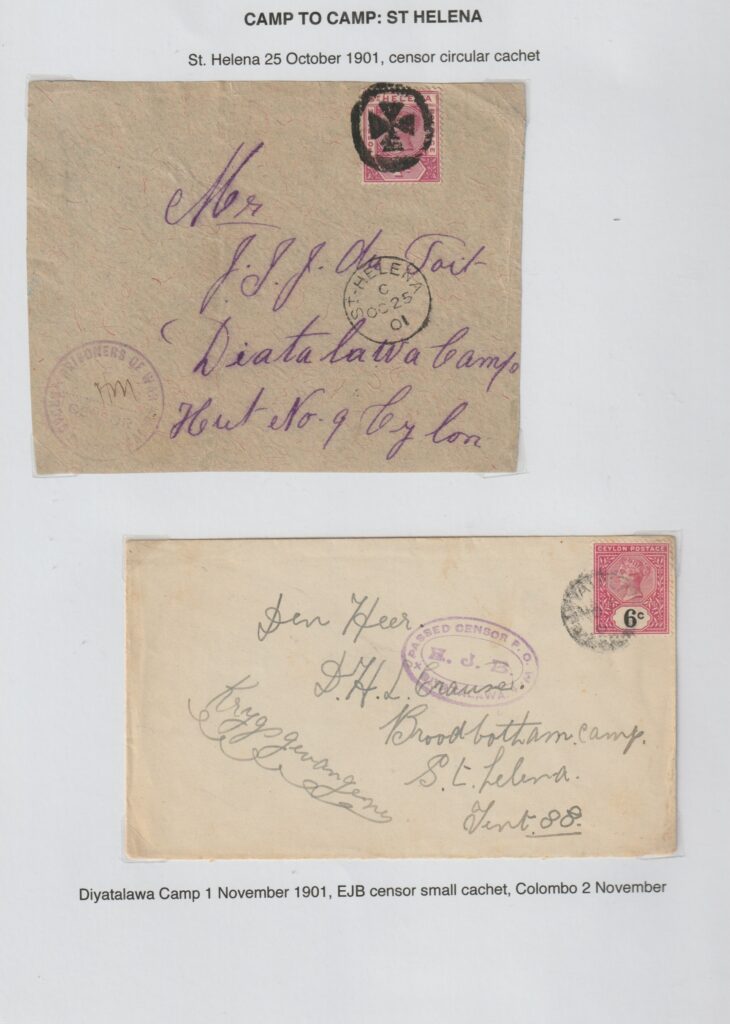 CAMP TO CAMP: ST HELENA
St. Helena 25 October 1901, censor circular cachet
HELENA
Mr
J. J. J. du Toit
ST-HELENA
C
OC 25
01
Diatalawa Camp
Hut No. 9 Cylon
PRISONERS OF WAR
CEYLON POSTAGE
6c
Den Heer.
PASSED CENSOR P.O.W.
E. J. B.
D. H. L. Crause.
Krygsgevangene
Broodbotham. camp.
St. Lelena.
Tent. 88.
Diyatalawa Camp 1 November 1901, EJB censor small cachet, Colombo 2 November